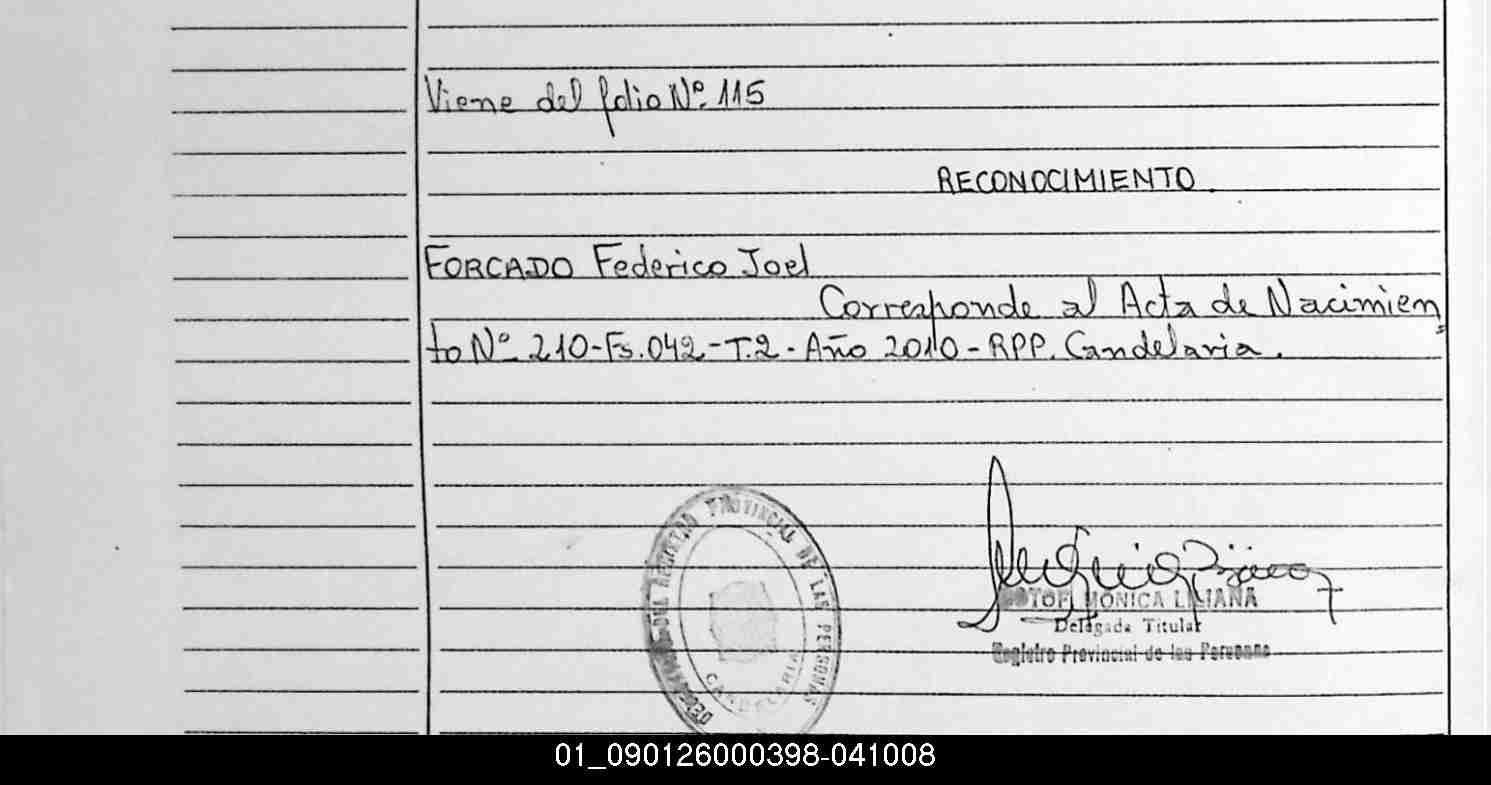 Viene del folio Nº 115
RECONOCIMIENTO.
FORCADO Federico Joel
Corresponde al Acta de Nacimien
to Nº 210-Fs.042-T.2-Año 2010-RPP. Candelaria.
REGISTRO PROVINCIAL DE LAS PERSONAS
CANDELARIA
MONICA LILIANA
Delegada Titular
Registro Provincial de las Personas
01_090126000398-041008